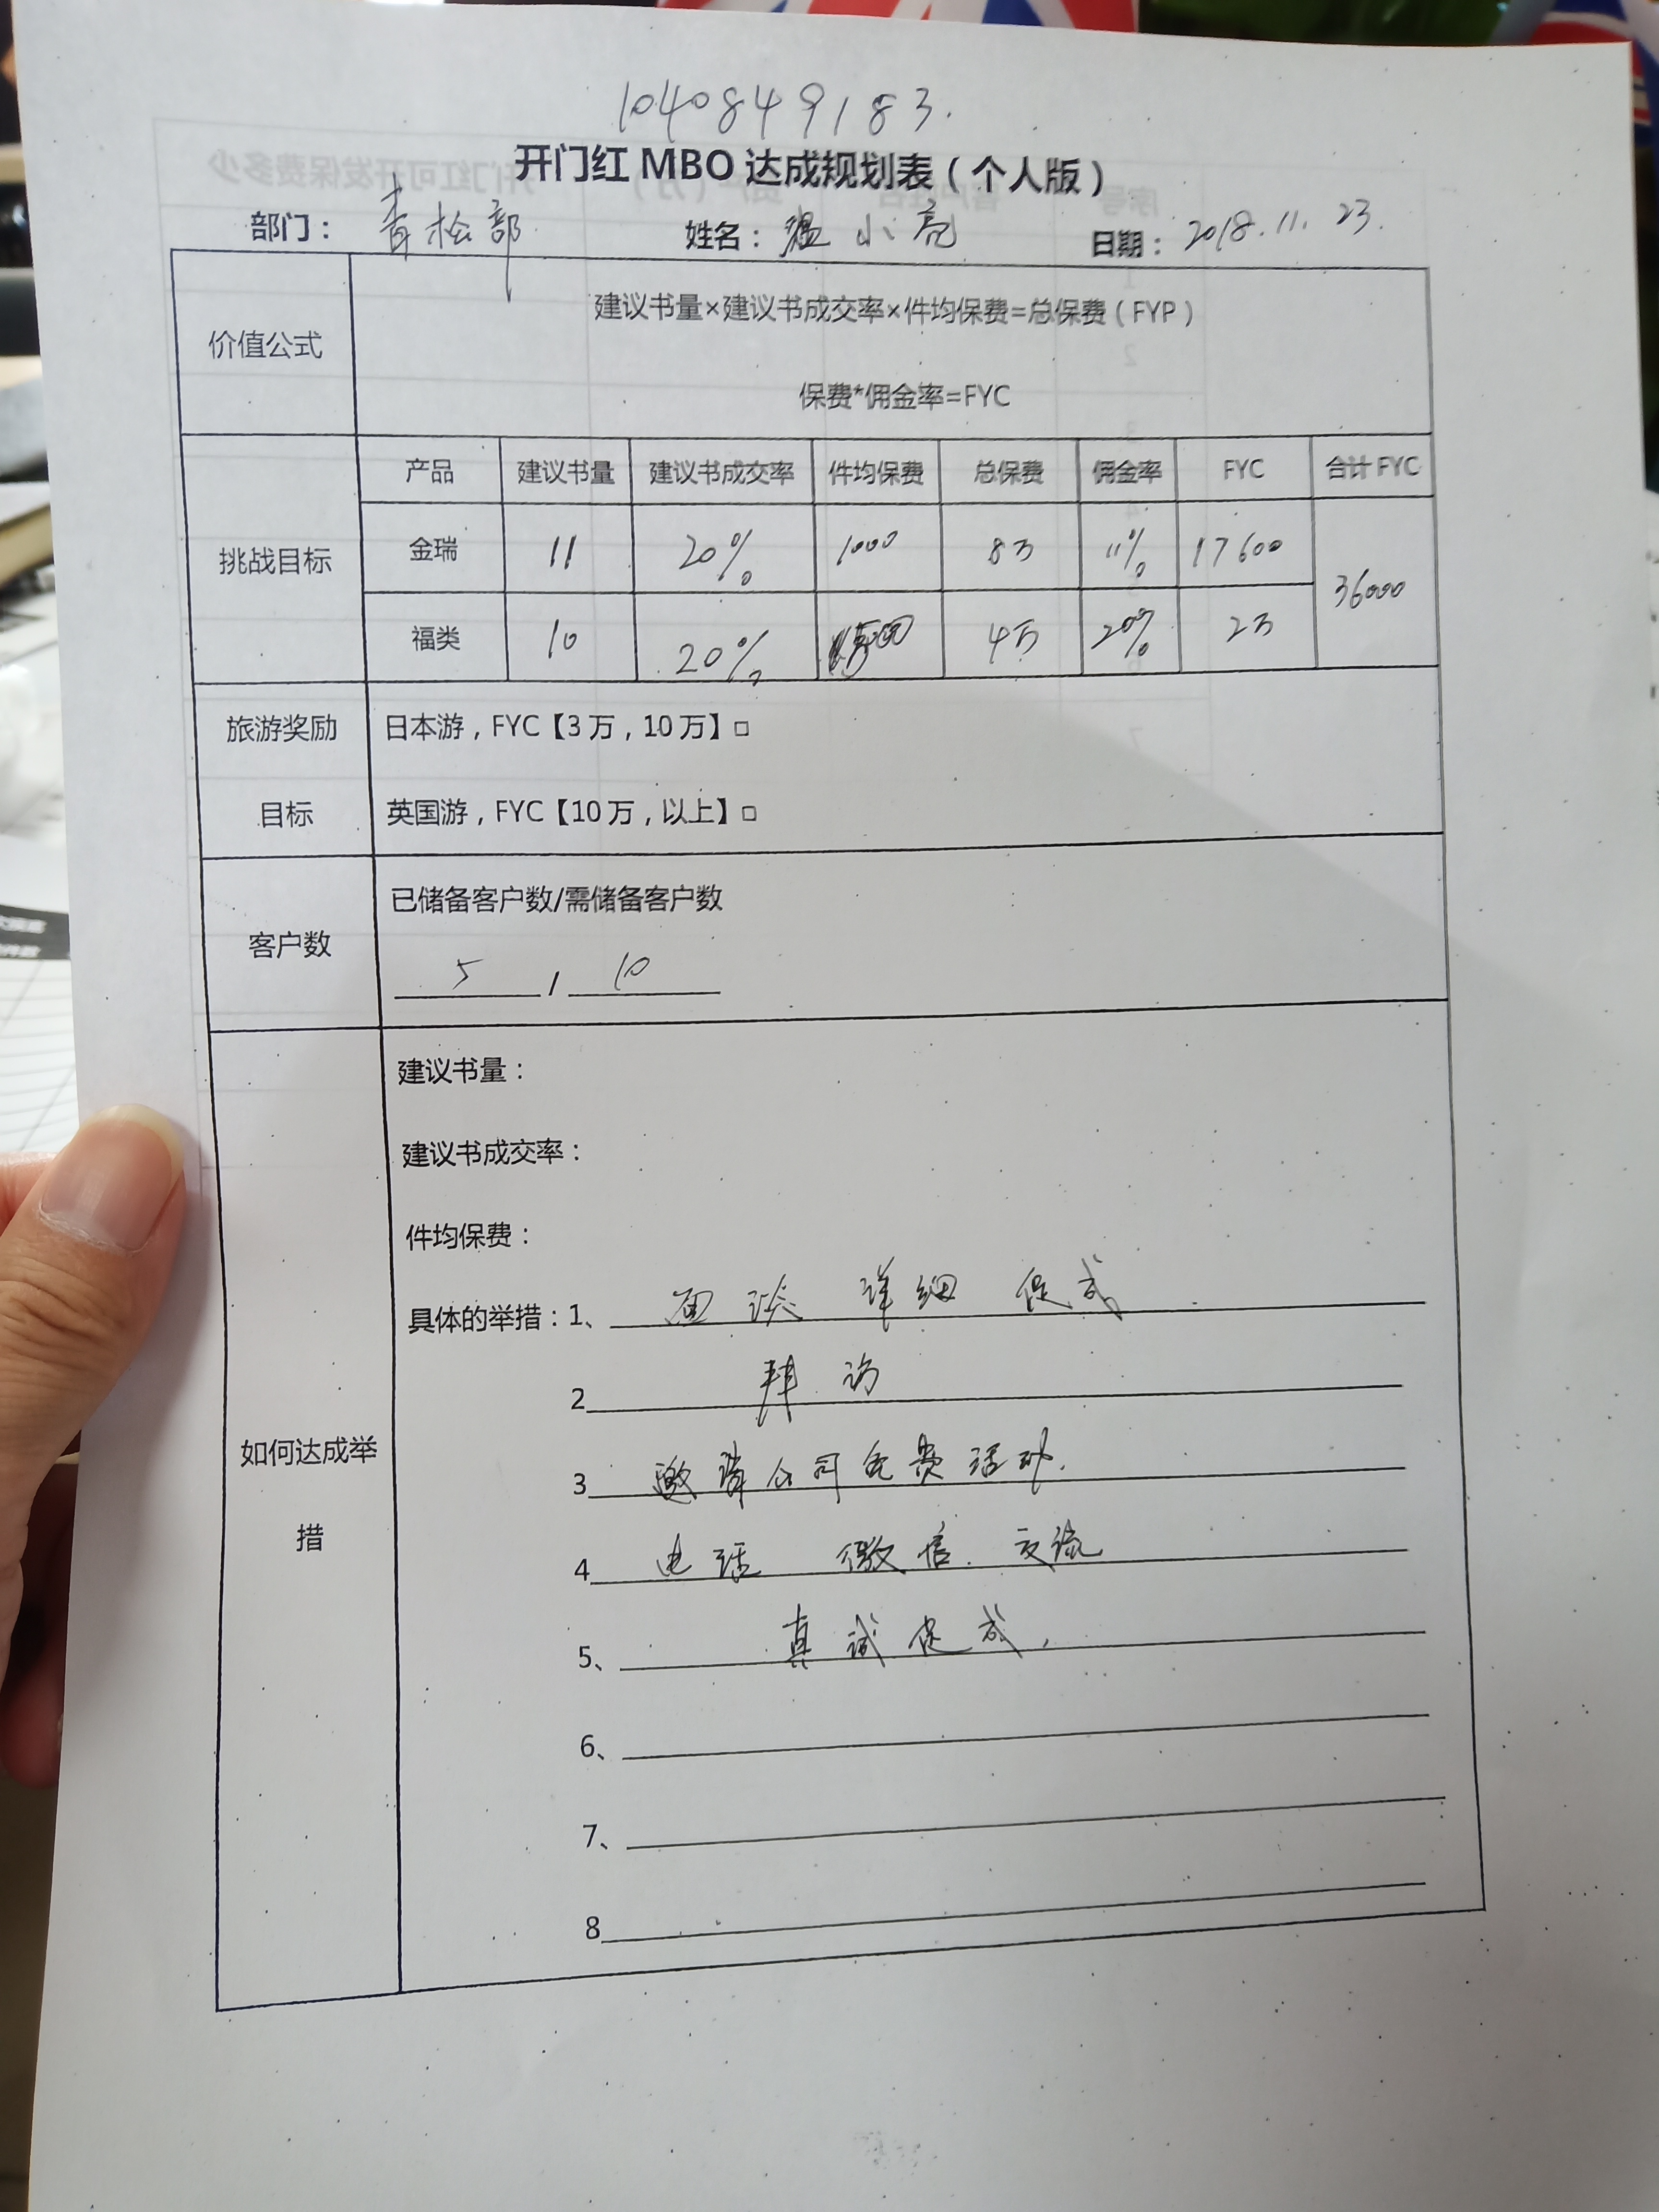 1040849183.
开门红 MBO 达成规划表（个人版）
部门： 青松部 姓名：温小亮 日期：2018.11.23.
价值公式
建议书量×建议书成交率×件均保费=总保费（FYP）
保费*佣金率=FYC
挑战目标
产品 建议书量 建议书成交率 件均保费 总保费 佣金率 FYC 合计 FYC
金瑞 11 20% 1000 8万 11% 17600 36000
福类 10 20% 4万 20% 2万
旅游奖励
目标
日本游，FYC【3万，10万】□
英国游，FYC【10万，以上】□
客户数
已储备客户数/需储备客户数
5 / 10
如何达成举
措
建议书量：
建议书成交率：
件均保费：
具体的举措：1、 面谈 详细 促成
2 拜访
3 邀请公司免费活动.
4 电话 微信. 交流
5、 真诚促成,
6、
7、
8